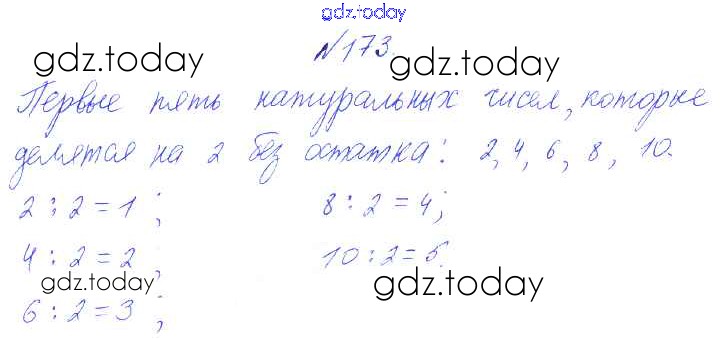 gdz.today
№173.
gdz.today gdz.today
Первые пять натуральных чисел, которые
делятся на 2 без остатка: 2, 4, 6, 8, 10.
2 : 2 = 1 ; 8 : 2 = 4;
4 : 2 = 2 ; 10 : 2 = 5.
gdz.today gdz.today
6 : 2 = 3 ;